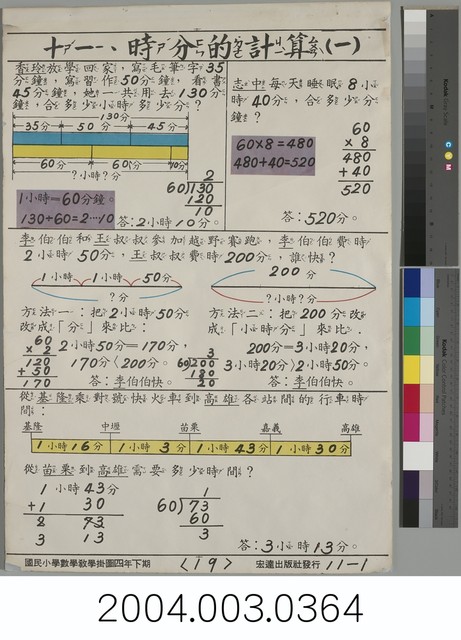 十一、時分的計算(一)
香玲放學回家，寫毛筆字35
分鐘，寫習作50分鐘，看書
45分鐘，她一共用去130分
鐘，合多少小時多少分？
130分
35分 50分 45分
60分 60分 10分
?小時?分
1小時=60分鐘。
130÷60=2…10
2
60)130
120
10
答：2小時10分。
志中每天睡眠8小
時40分，合多少分
鐘？
60×8=480
480+40=520
60
× 8
480
+ 40
520
答：520分。
李伯伯和王叔叔參加越野賽跑，李伯伯費時
2小時50分，王叔叔費時200分，誰快？
1小時 1小時 50分
?分
方法一：把2小時50分
改成「分」來比：
60
× 2
120
+ 50
170
2小時50分=170分，
170分<200分。
答：李伯伯快。
200分
?小時?分
方法二：把200分改
成「小時分」來比．
200分=3小時20分，
3
60)200
180
20
3小時20分>2小時50分。
答：李伯伯快。
從基隆乘對號快火車到高雄各站間的行車時
間：
基隆 中壢 苗栗 嘉義 高雄
1小時16分 1小時3分 1小時43分 1小時30分
從苗栗到高雄需要多少時間？
1小時43分
+1 30
2 73
3 13
1
60)73
60
3
答：3小時13分。
國民小學數學教學掛圖四年下期
<19>
宏達出版社發行
11-1
Kodak
2004.003.0364